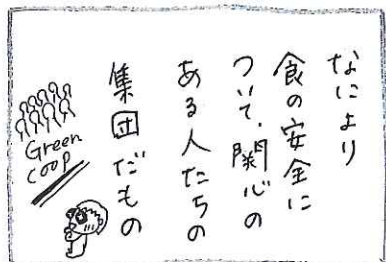 なにより
食の安全に
ついて、関心の
ある人たちの
集団だもの
Green
coop